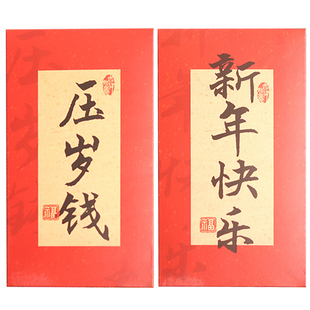 压岁钱
新年快乐